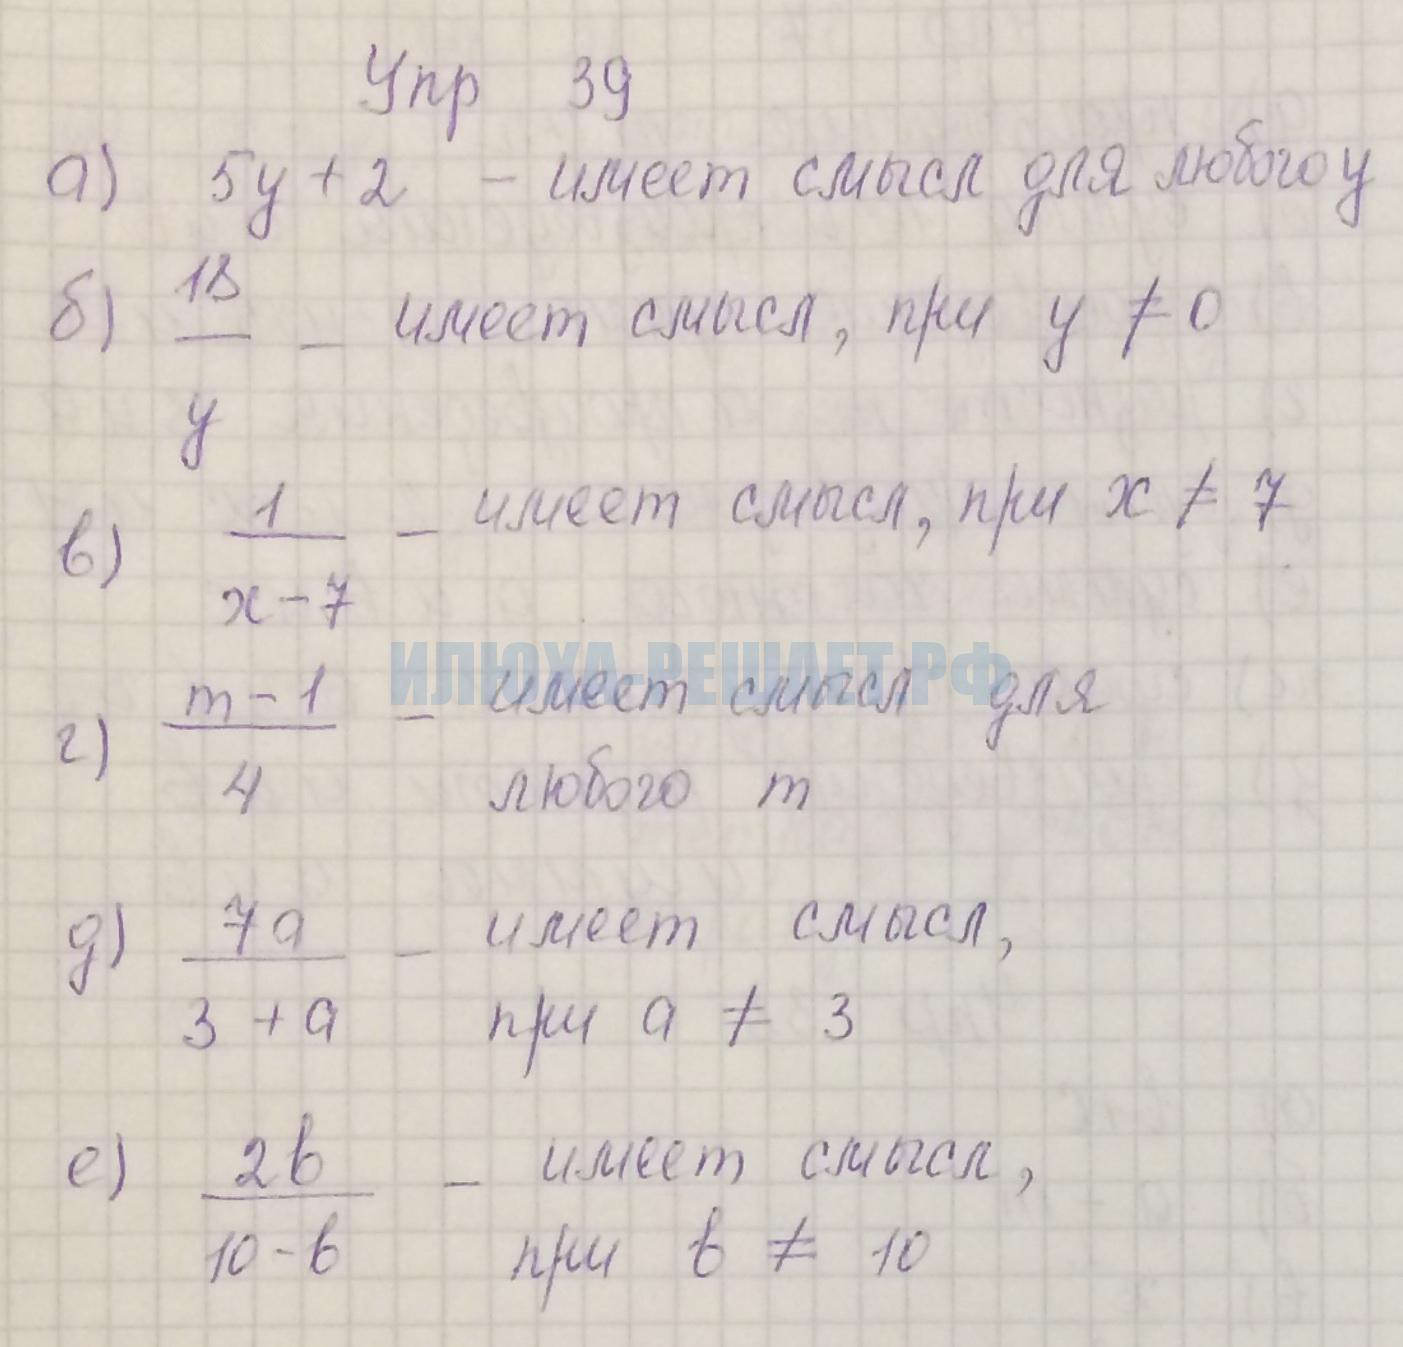 Упр 39
а) 5y + 2 - имеет смысл для любого y
б) 18/y - имеет смысл, при y ≠ 0
в) 1/(x - 7) - имеет смысл, при x ≠ 7
ИЛЮХА-РЕШАЕТ.РФ
г) (m - 1)/4 - имеет смысл для
любого m
д) 7a/(3 + a) - имеет смысл,
при a ≠ 3
е) 2b/(10 - b) - имеет смысл,
при b ≠ 10